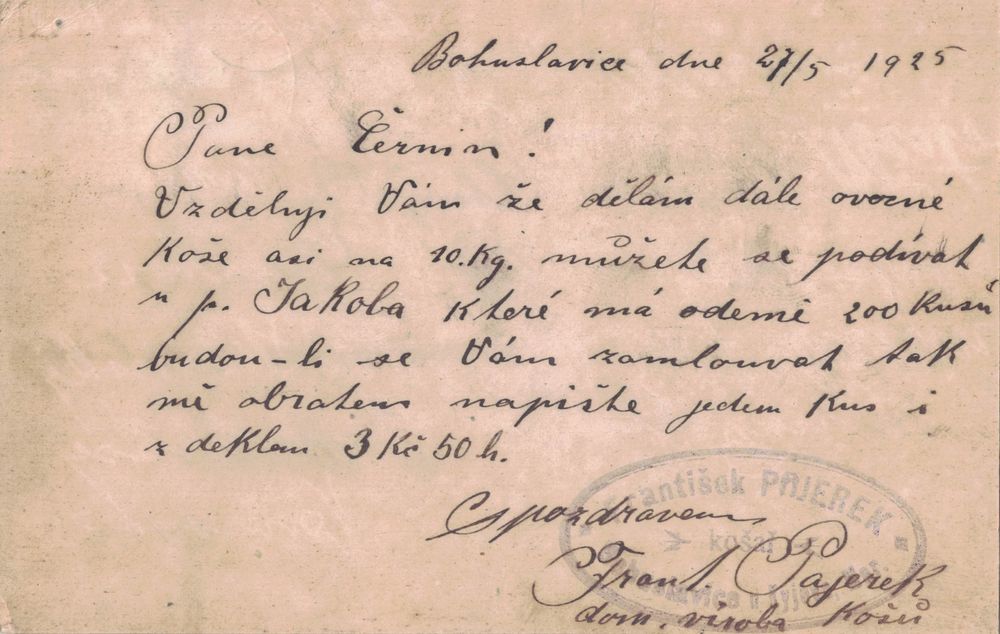 Bohuslavice dne 27/5 1925
Pane Černin!
Vzděluji Vám že dělám dále ovocné
Koše asi na 10.Kg. můžete se podívat
u p. Jakoba které má odemě 200 Kusů
budou-li se Vám zamlouvat tak
mě obratem napište jedem Kus i
z deklem 3 Kč 50 h.
S pozdravem
František PAJEREK
košař
Frant. Pajerek
Bohuslavice u
dom. víroba Košů